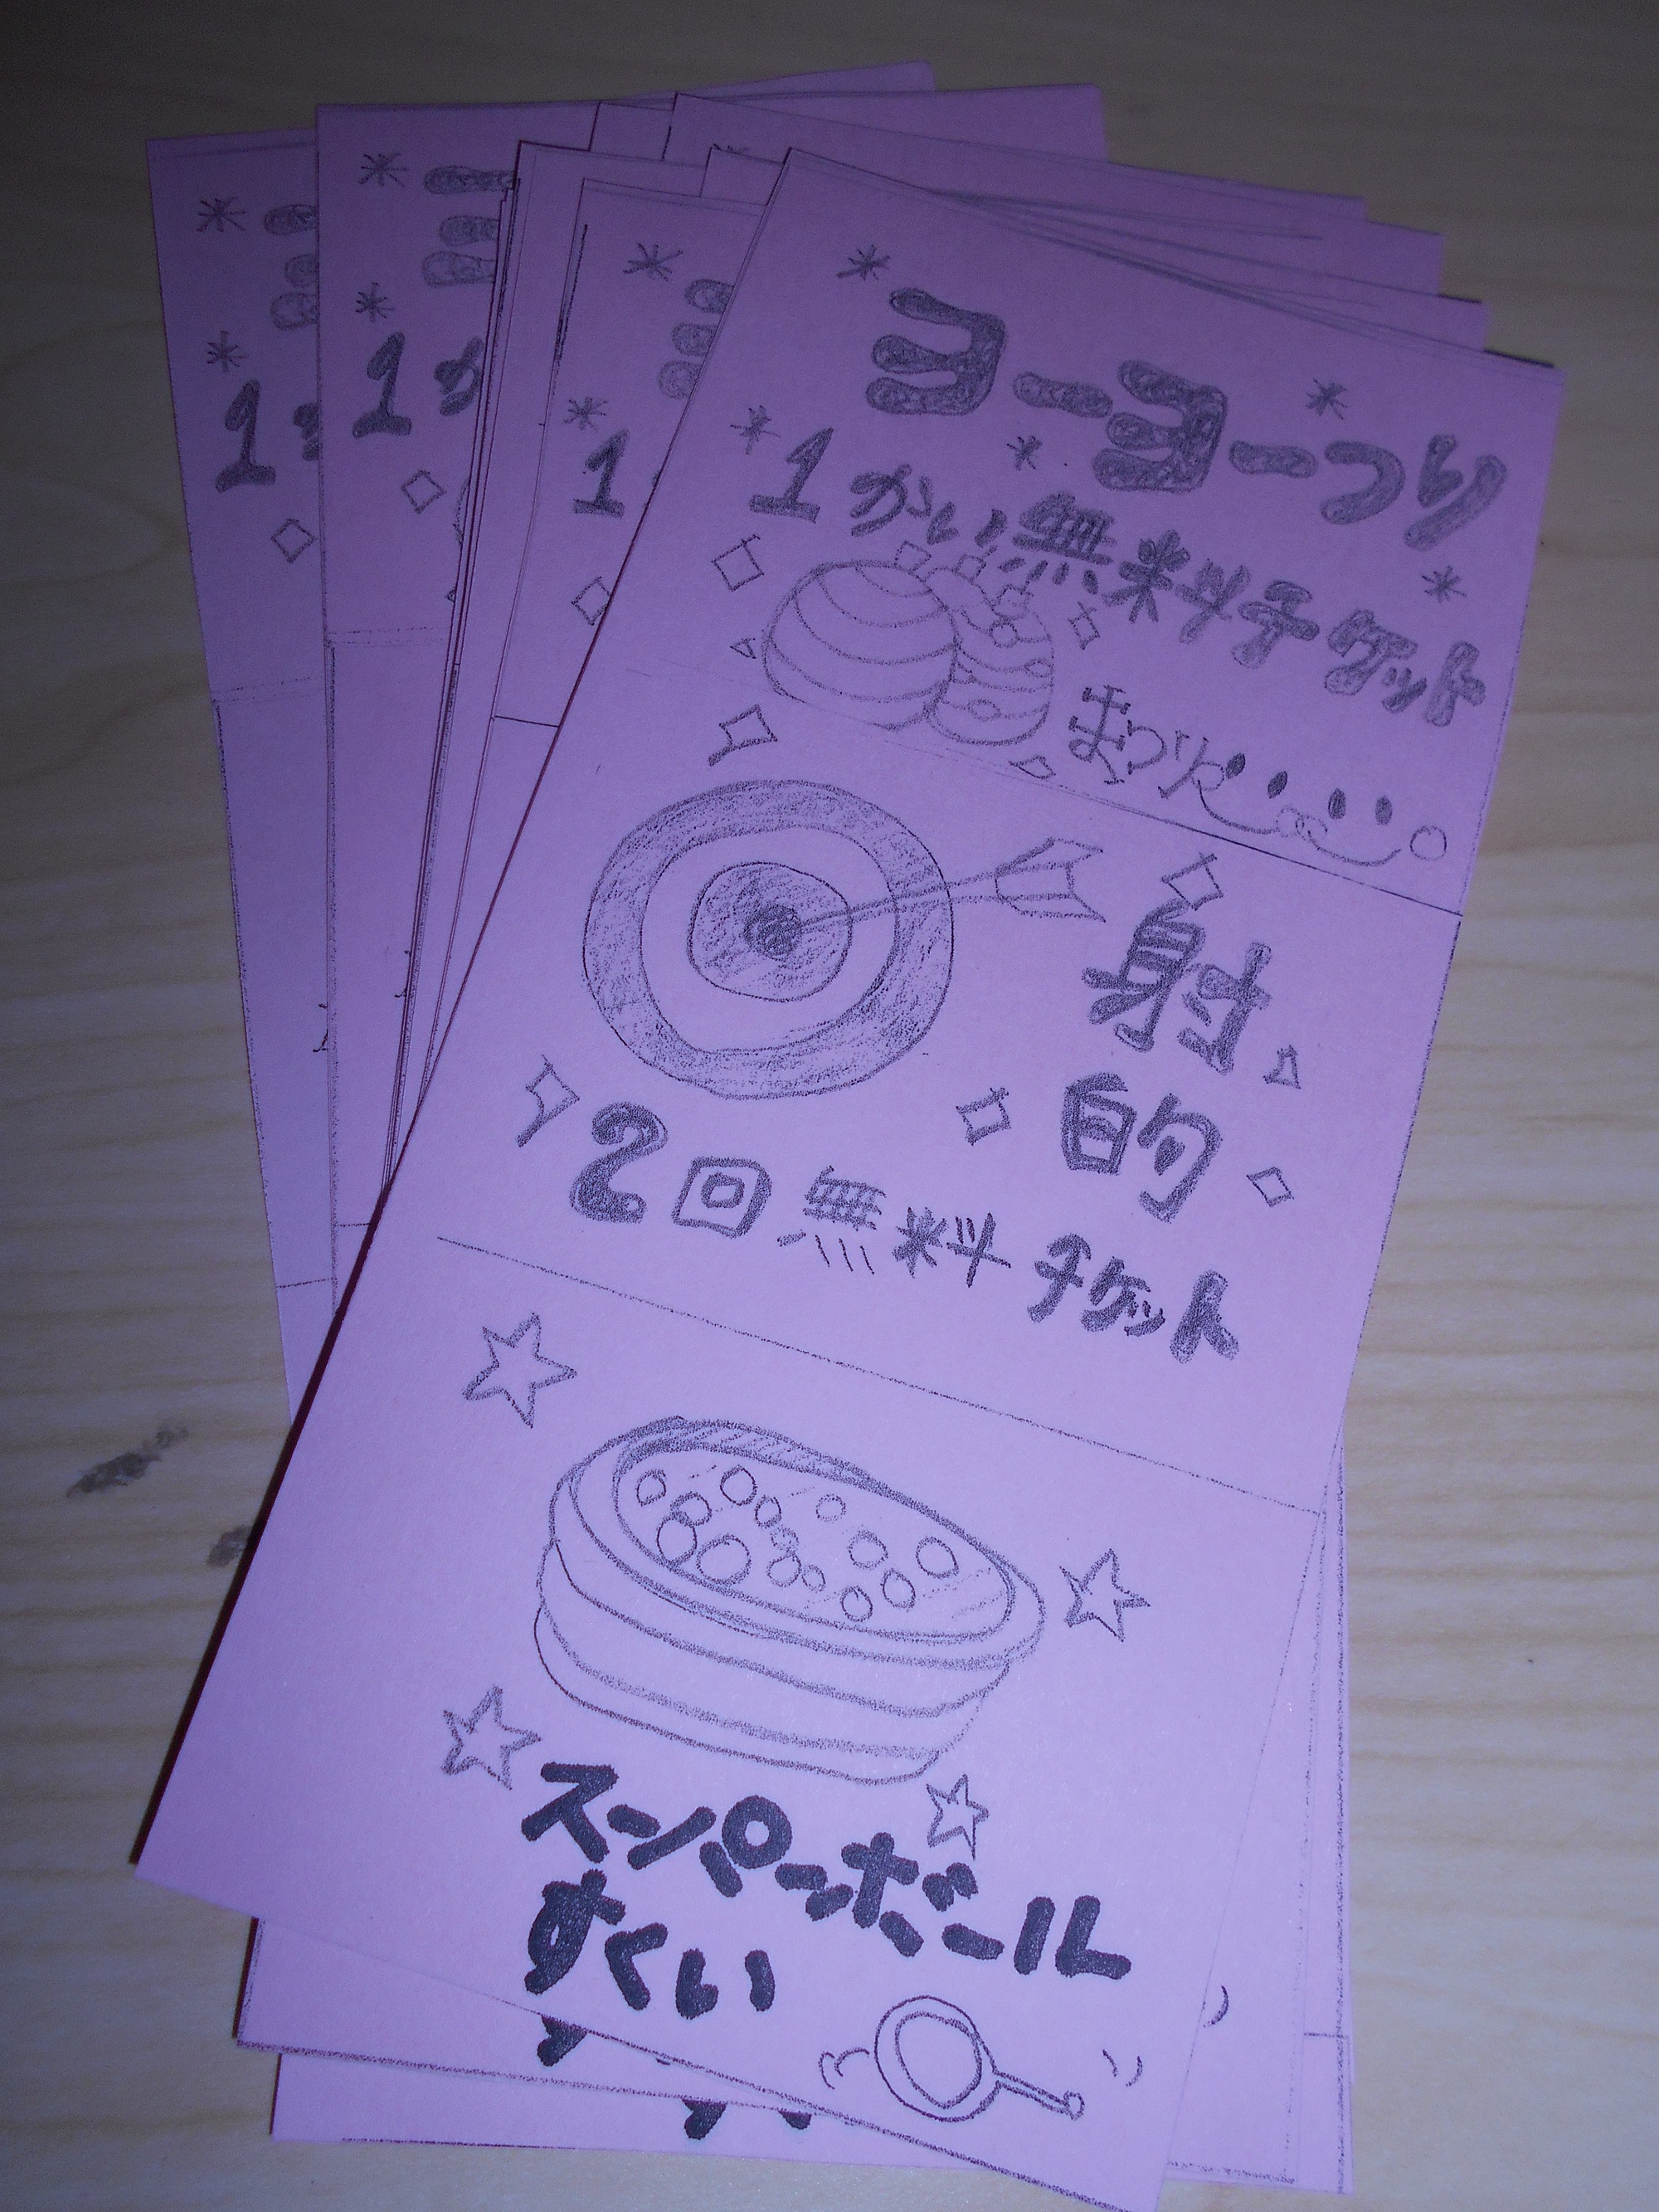 ヨーヨーつり
1かい無料チケット
射
的
2回無料チケット
スーパーボール
すくい
1か
1
1